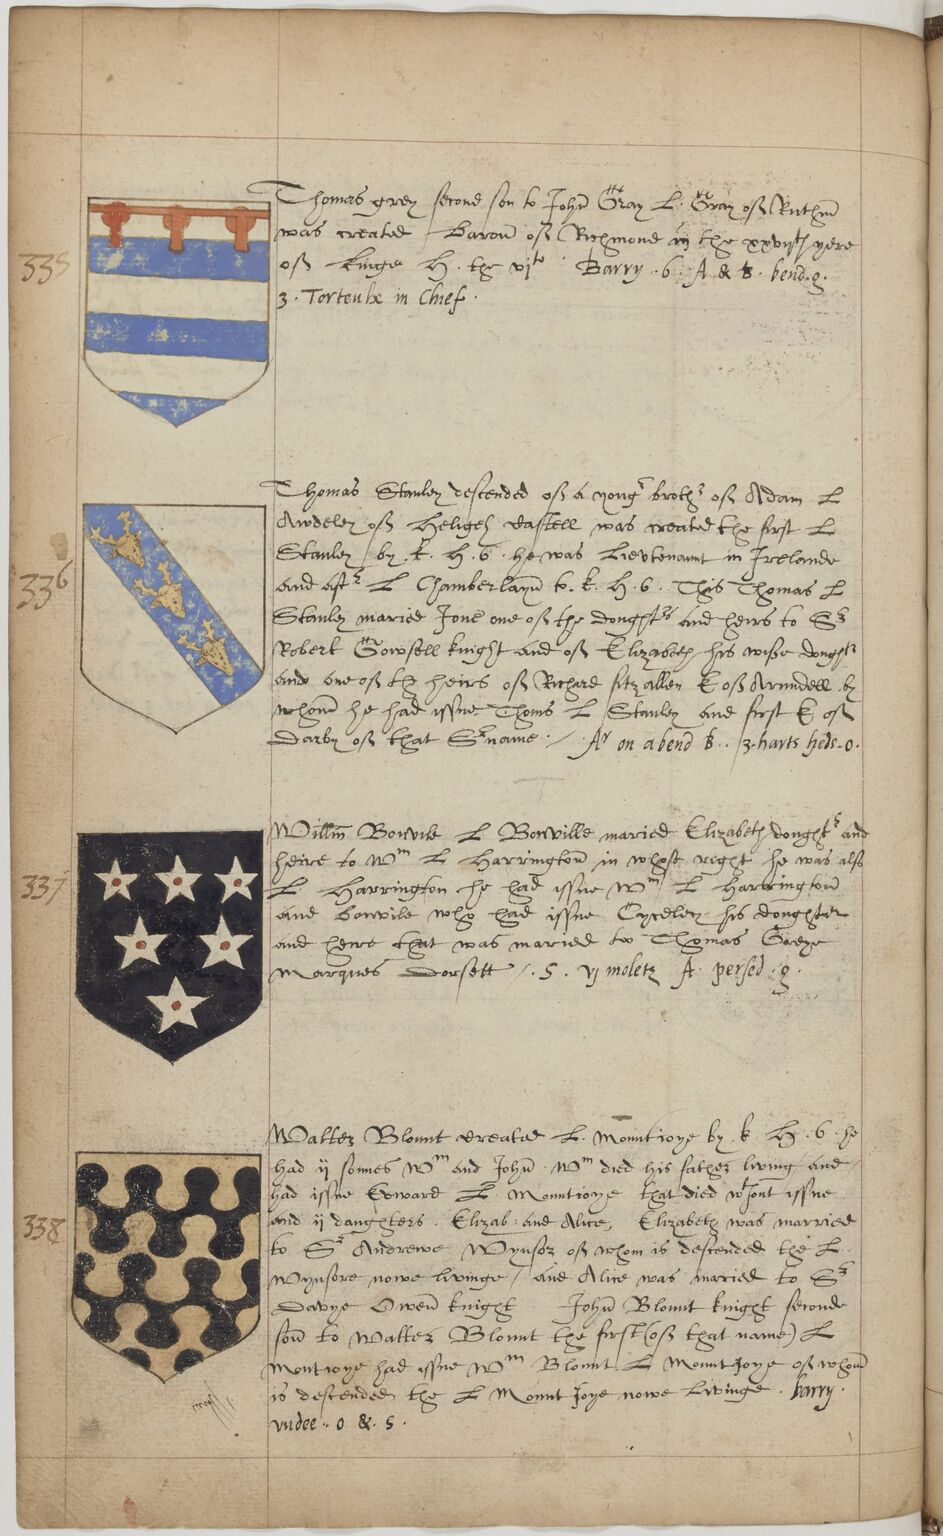 335
Thomas grey second son to John Gray L. Gray off Ruthin
was created baron off Richmond in the xxvijth yere
off kinge h. the vjte Barry .6. A & B. bend. g.
3. Torteulx in Chief.
336
Thomas Stanley descended off a yongr brothr off Adam L
Awdeley off Heligh castell was created the first L
Stanley by .k. H. 6. he was Lievtenaunt in Irelande
and aftr L Chamberlayn to .k. H. 6. This Thomas L
Stanley maried Jone one off the doughtrs and heirs to Sr
Robert Gowsell knight and off Elizabeth his wiffe doughtr
and one off th heirs off Richard fitzallen E off Arundell by
whom he had issue Thoms L Stanley and first E off
Darby off that Srname ./. Ar on a bend B. 3 harts heds . o.
337
Willm Bonvile L Bonville maried Elizabeth doughtr and
heire to Wm L Harrington in whose reght he was also
L. Harrington he had issue Wm L Harrington
and bonvile who had issue Cyceley his doughter
and heire that was maried to Thomas Greye
Marques Dorsett /. S. vj moletz A. persed . g.
338
Walter Blount created L. Mountioye by .k. H. 6. he
had ij sonnes Wm and John. Wm died his father living and
had issue Edward L. Mountioye that died wthout issue
and ij daughters. Elizab: and Alice, Elizabeth was married
to Sr Andrewe Wynsor off whom is descended the L.
Wynsore nowe livinge / and Alice was maried to Sr
Davye Owen knight John Blount knight seconde
son to Walter Blount the first (off that name) L
Montioye had issue Wm Blount L Mount Joye off whom
is descended the L Mount Joye nowe Livinge. barry.
undee .. o &. s.